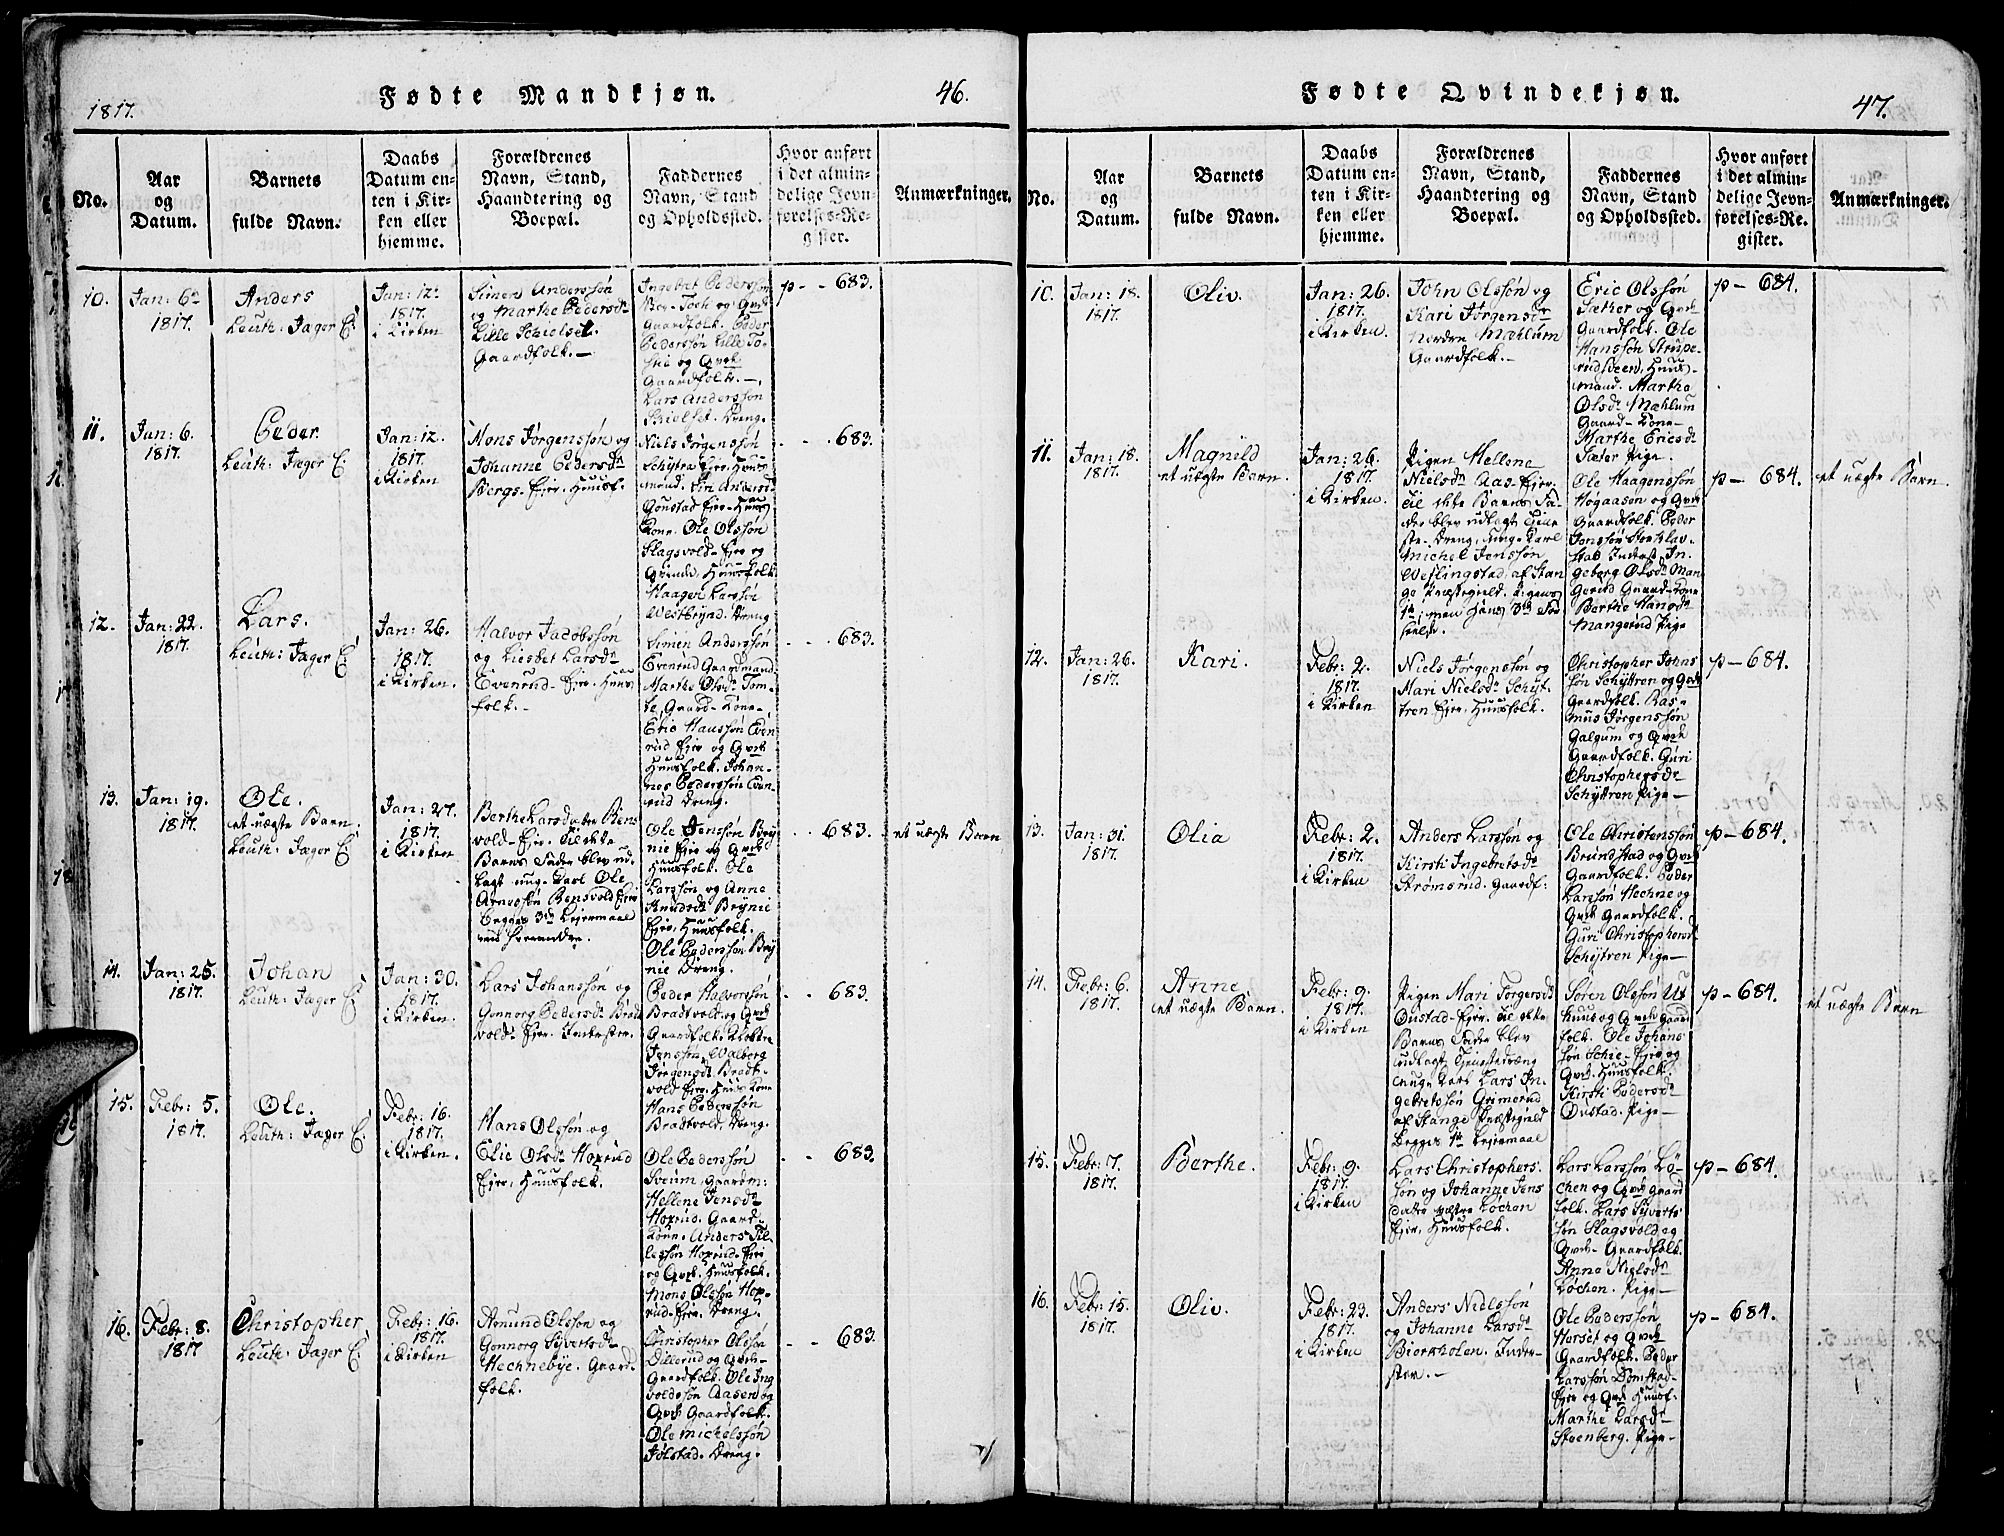 1817.
Fødte Mandkjøn.
46.
No.
Aar
og
Datum.
Barnets
fulde Navn.
Daabs
Datum en-
ten i Kir-
ken eller
hjemme.
Forældrenes
Navn, Stand,
Haandtering og
Boepæl.
Faddernes
Navn, Stand
og Opholdssted.
Hvor anført
i det almin-
delige Jevn-
førelses-Re-
gister.
Anmærkninger.
10.
Jan: 6te
1817.
Anders
Leuth: Jager C.
Jan: 12te
1817.
i Kirken
Simen Anderssøn
og Marthe Pedersdr
Lille Schielset.
Gaardfolk.-
Ingebret Pederssøn
og Qvde
Gaardfolk. Peder
Pederssøn Lille To-
stie og Qvde
Gaardfolk.-,
Lars Anderssøn
Schielset. Dreng.
p - - 683.
11.
Jan: 6.
1817.
Peder
Leuth: Jæger C.
Jan: 12.
1817.
i Kirken
Mons Jørgenssøn og
Johanne Pedersdr
Bergs-Ejer. Huusf.
Niels Jørgenssøn
Schÿtra Ejer. Huus-
mand. Siri Andersdr
Gonstad Ejer-Huus
Kone. Ole Olssøn
Slagsvold-Ejer og
Qvinde, Huusfolk
Haagen Larssøn
Westbrÿnd. Dreng
- - 683.
12.
Jan: 22.
1817.
Lars.
Leuth: Jæger C.
Jan: 26.
1817.
i Kirken.
Halvor Jacobssøn
og Liesbet Larsdr
Evenrud-Ejer. Huus
folk.-
Simen Anderssøn
Evenrud Gaardmand
Marthe Olsdr Tom-
te, Gaard-Kone-
Eric Hanssøn Even
rud Ejer og Qvde
Huusfolk. Johan-
nes Pederssøn Even
rud Dreng.
- - 683.
13.
Jan: 19.
1817.
Ole.
et uægte Barn.
Leuth: Jæger C.
Jan: 27.
1817.
i Kirken
Berthe Larsdatter Bens
vold-Ejer. Til dette
Barns Fader blev ud-
lagt ung-Karl Ole
Arnessøn Bensvold Ejer
begges 3die Lejermaal
med hverandre.
Ole Jenssøn Brÿ
nie Ejer og Qvde
Huusfolk. Ole
Larssøn og Anne
Knudsdr Brÿnie
Ejer, Huusfolk.
Ole Pederssøn Brÿ
nie Dreng.
- - 683.
et uægte Barn
14.
Jan: 25.
1817.
Johan
Leuth: Jæger C.
Jan: 30.
1817.
i Kirken
Lars Johanssøn og
Gonnorg Pedersdr Bradt
vold-Ejer. Inderster.
Peder Halvorssøn
Bradtvold og Qvde
Gaardfolk.
Jenssøn, Walberg
Jørgensdr Bradt-
vold Ejer. Huus Kone
Hans Pederssøn
Bradtvold. Dreng.
- - 683.
15.
Febr: 5.
1817.
Ole.
Leuth: Jæger C.
Febr: 16.
1817.
i Kirken.
Hans Olssøn og
Elie Olsdr Hoxrud
Ejer, Huusfolk.
Ole Pederssøn
Sveum, Gaardm:
Hellene Jensdr
Hoxrud. Gaard-
Kone. Anders Til-
lessøn Hoxrud. Ejer
og Qvde. Huusfolk.
Mons Olssøn Hox-
rud-Ejer. Dreng.
- - 683.
16.
Febr: 8.
1817
Christopher
Leuth: Jager C.
Febr: 16.
1817.
i Kirken
Amund Olssøn og
Gonnorg Sÿvertsdr
Hechnebÿe. Gaard
folk.
Christopher Olssøn
Dillerud og Qvde-
Gaardfolk. Ole Ing
voldssøn Aasen og
Qvde. Gaardfolk.
Ole Michelssøn
Jølstad. Dreng.
- - 683.
Fødte Qvindekjøn.
47.
No.
Aar
og
Datum.
Barnets
fulde Navn.
Daabs
Datum en-
ten i Kir-
ken eller
hjemme.
Forældrenes
Navn, Stand,
Haandtering og
Boepæl.
Faddernes
Navn, Stand
og Opholdssted.
Hvor anført
i det almin-
delige Jevn-
førelses-Re-
gister.
Anmærkninger.
10.
Jan: 18.
1817.
Oliv.
Jan: 26.
1817.
i Kirken.
John Olssøn og
Kari Jørgensdr
Nordre Mæhlum
Gaardfolk.-
Eric Olssøn
Sæther og Qvde
Gaardfolk. Ole
Hanssøn Strupe-
rudsveen, Huus-
mand. Marthe
Olsdr Mæhlum
Gaard-Kone-
Marthe Ericsdr
Sæter Pige-
p - 684.
11.
Jan: 18.
1817.
Magnild
et uægte Barn.
Jan: 26.
1817.
i Kirken.
Pigen Hellene
Nielsdr Aas-Ejer.
Til dette Barns Fa-
der blev udlagt Tiene-
ste-Dreng, ung-Karl
Michel Jonssøn
Weflingstad, af Stan
ge Præstegield. Pigens
1te, men Hans 3die For
seelse.
Ole Haagenssøn
Høgaasen og Qvde
Gaardfolk. Peder
Jonssøn Stor Slav-
stad Inderst. In-
geborg Olsdr Man
gerud Gaard-Kone
Berthe Hansdr
Mangerud Pige
p - 684.
et uægte Barn.
12.
Jan: 26.
1817.
Kari.
Febr: 2.
1817.
i Kirken
Niels Jørgenssøn og
Mari Nielsdr Schÿt-
tren Ejer, Huusfolk.
Christopher Johns
søn Schÿttren og Qvde
Gaardfolk. Ras-
mus Jørgenssøn
Galgum og Qvde
Gaardfolk. Guri
Christophersdr
Schÿttren Pige-
p - 684.
13.
Jan: 31.
1817.
Olia
Febr: 2.
1817.
i Kirken
Anders Larssøn og
Kirsti Ingebretsdr
Strømsrud. Gaardf:
Ole Christenssøn
Brundstad og Qvde
Gaardfolk. Peder
Larssøn Hechne og
Qvde Gaardfolk.
Guri Christophersdr
Schÿtren Pige-
p - 684.
14.
Febr: 6.
1817.
Anne
et uægte Barn.
Febr: 9.
1817.
i Kirken
Pigen Mari Torgersdr
Onstad-Ejer. Til dette
Barns Fader blev
udlagt Tienestedræng
unge Karl Lars In-
gebretssøn Grimerud
af Stange Præstegield
begges 1te Lejermaal
Søren Olssøn Ut
huus og Qvde Gaard
folk. Ole Johans
søn Schie-Ejer og
Qvd. Huusfolk.
Kirsti Pedersdr
Onstad. Pige-
p - 684.
et uægte Barn
15.
Febr: 7.
1817.
Berthe.
Febr: 9.
1817.
i Kirken
Lars Christophers-
søn og Johanne Jens
datter væstre Løchen
Ejer, Huusfolk.
Lars Larssøn Lø-
chen og Qvde Gaard
folk. Lars Sÿverts
søn Slagsvold og
Qvde-Gaardfolk.
Anne Nielsdr
Løchen. Pige-
p - 684.
16.
Febr: 15.
1817.
Oliv.
Febr: 23.
1817.
i Kirken
Anders Nielssøn
og Johanne Larsdr
Biorkholen. Inder-
ster.-
Ole Pederssøn
Horset og Qvde
Gaardfolk. Peder
Larssøn Dømstad-
Ejer og Qvd. Huusf.
Marthe Larsdr
Steenberg. Pige-
p - 684.